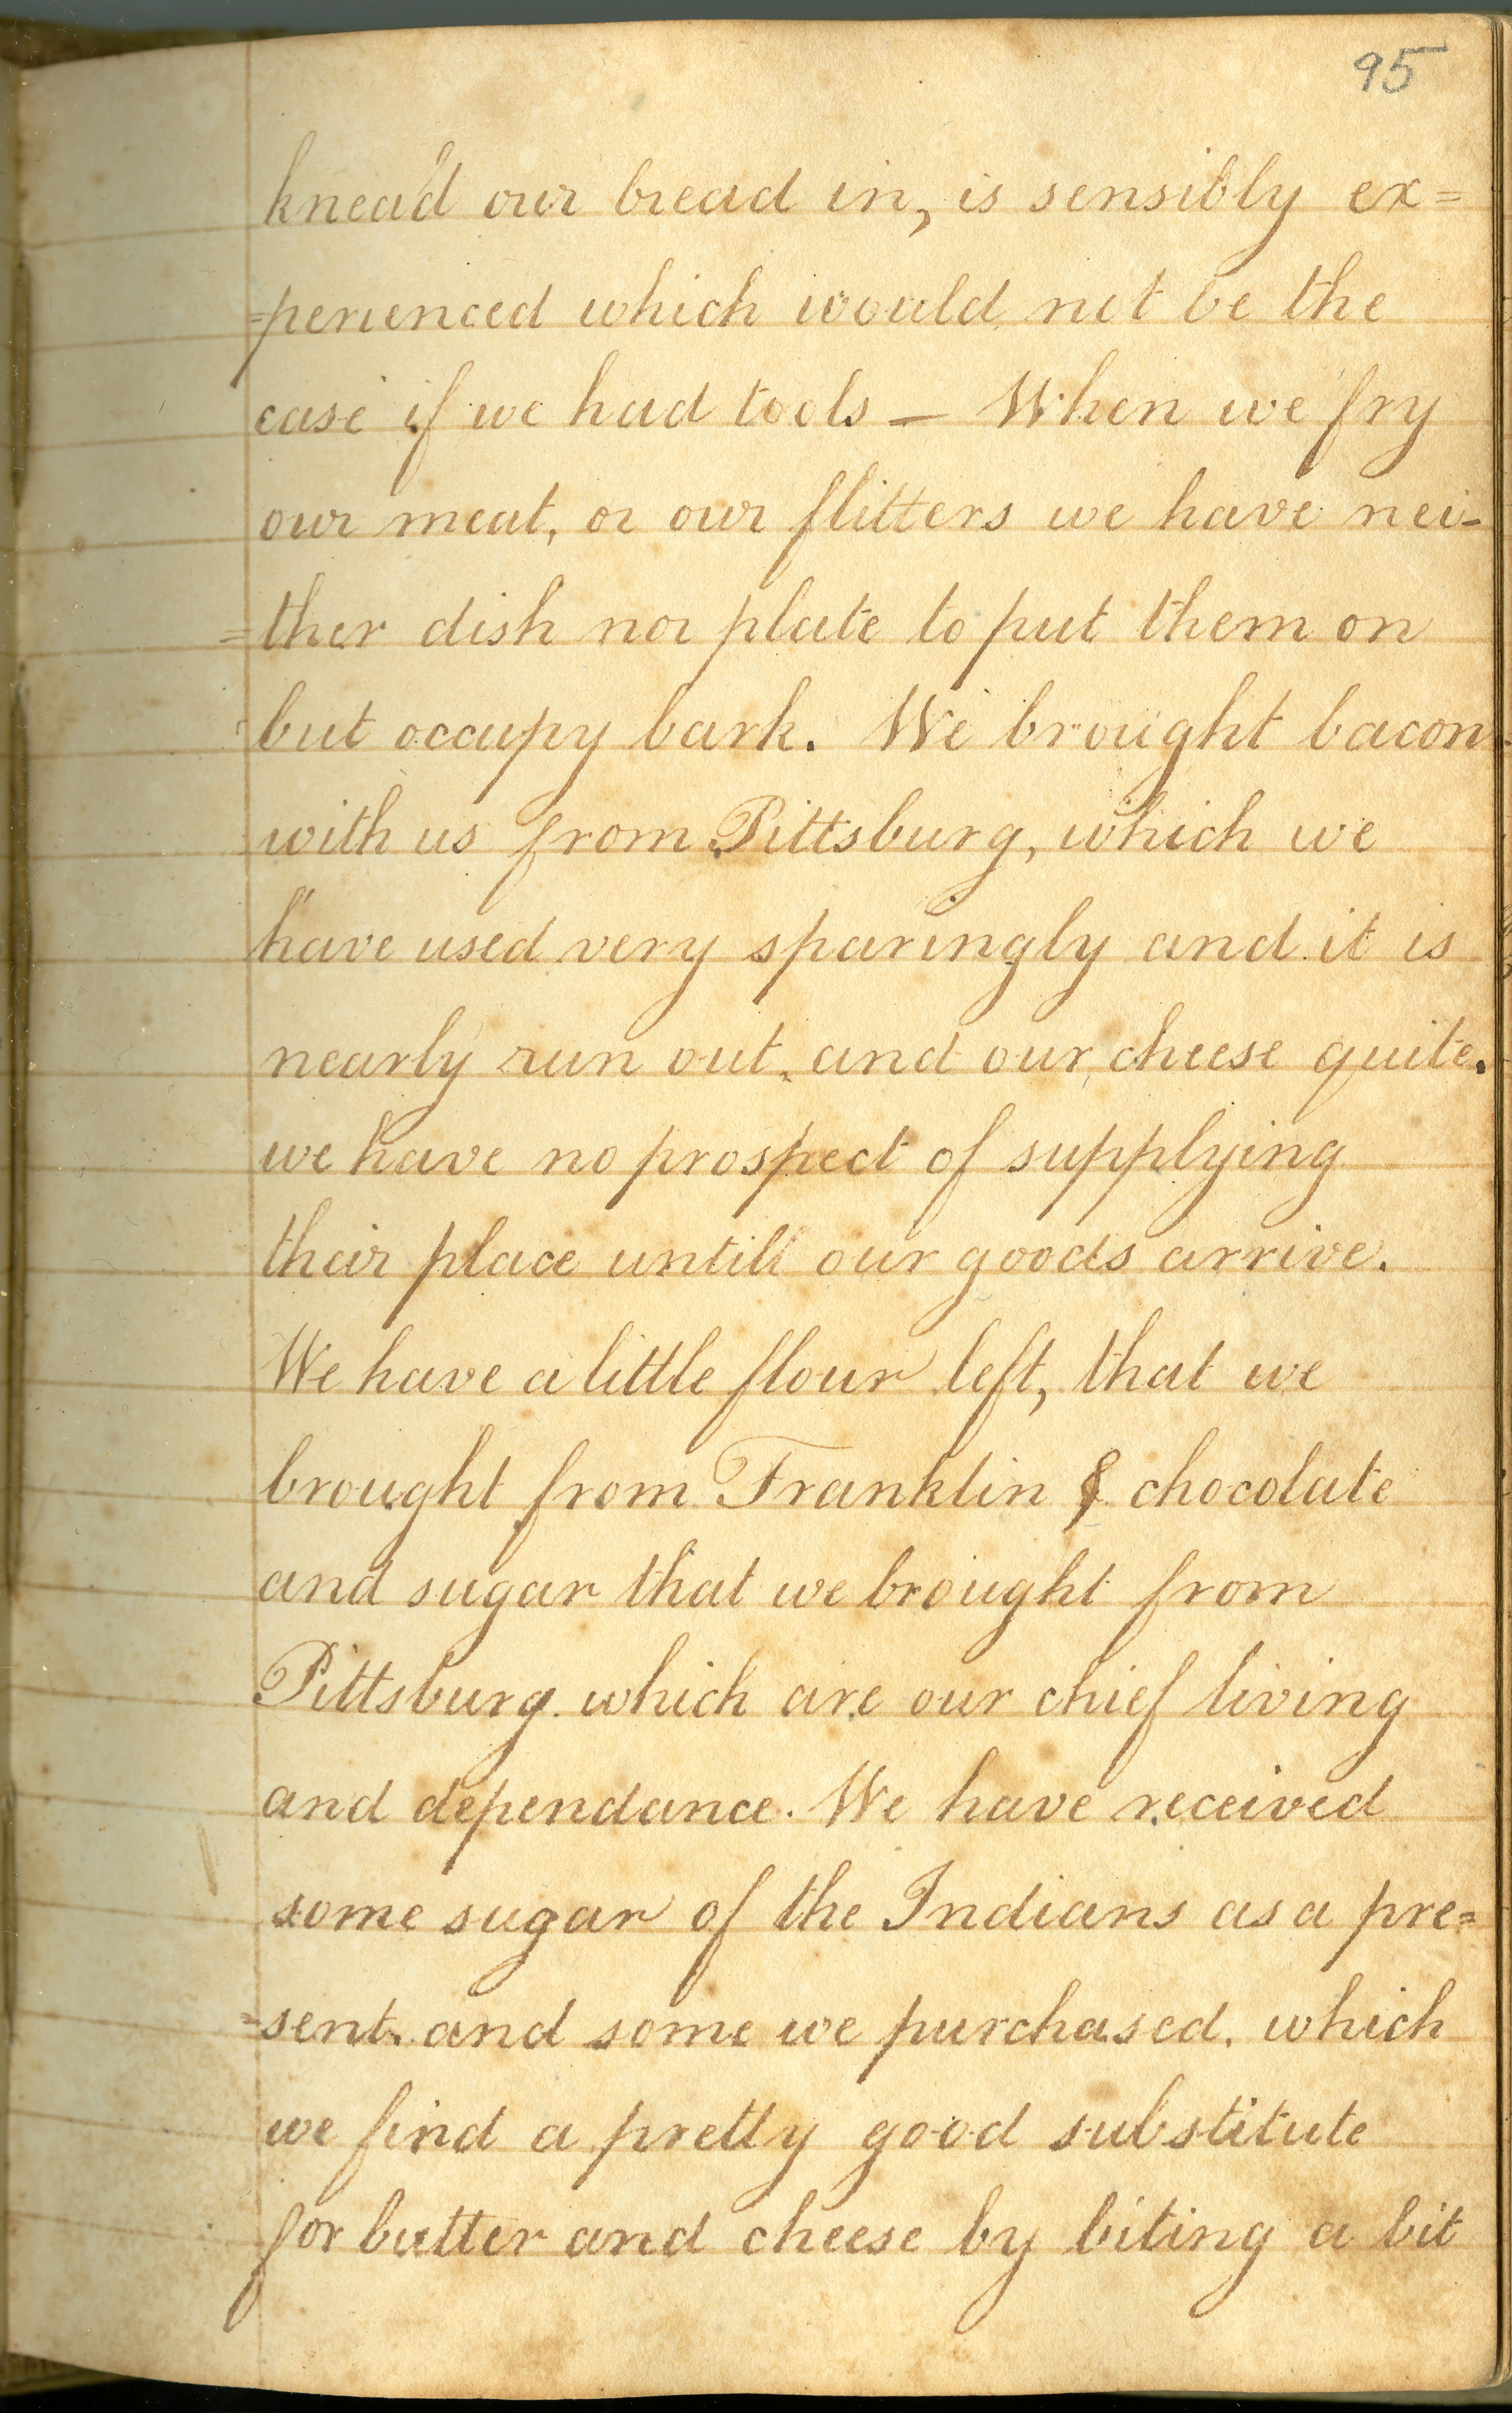 95
knead'd our bread in, is sensibly ex=
=perienced which would not be the
case if we had tools — When we fry
our meat, or our flitters we have nei-
=ther dish nor plate to put them on
but occupy bark. We brought bacon
with us from Pittsburg, which we
have used very sparingly and it is
nearly run out, and our cheese quite.
we have no prospect of supplying
their place untill our goods arrive.
We have a little flour left, that we
brought from Franklin & chocolate
and sugar that we brought from
Pittsburg. which are our chief living
and dependance. We have received
some sugar of the Indians as a pre=
=sent. and some we purchased, which
we find a pretty good substitute
for butter and cheese by biting a bit